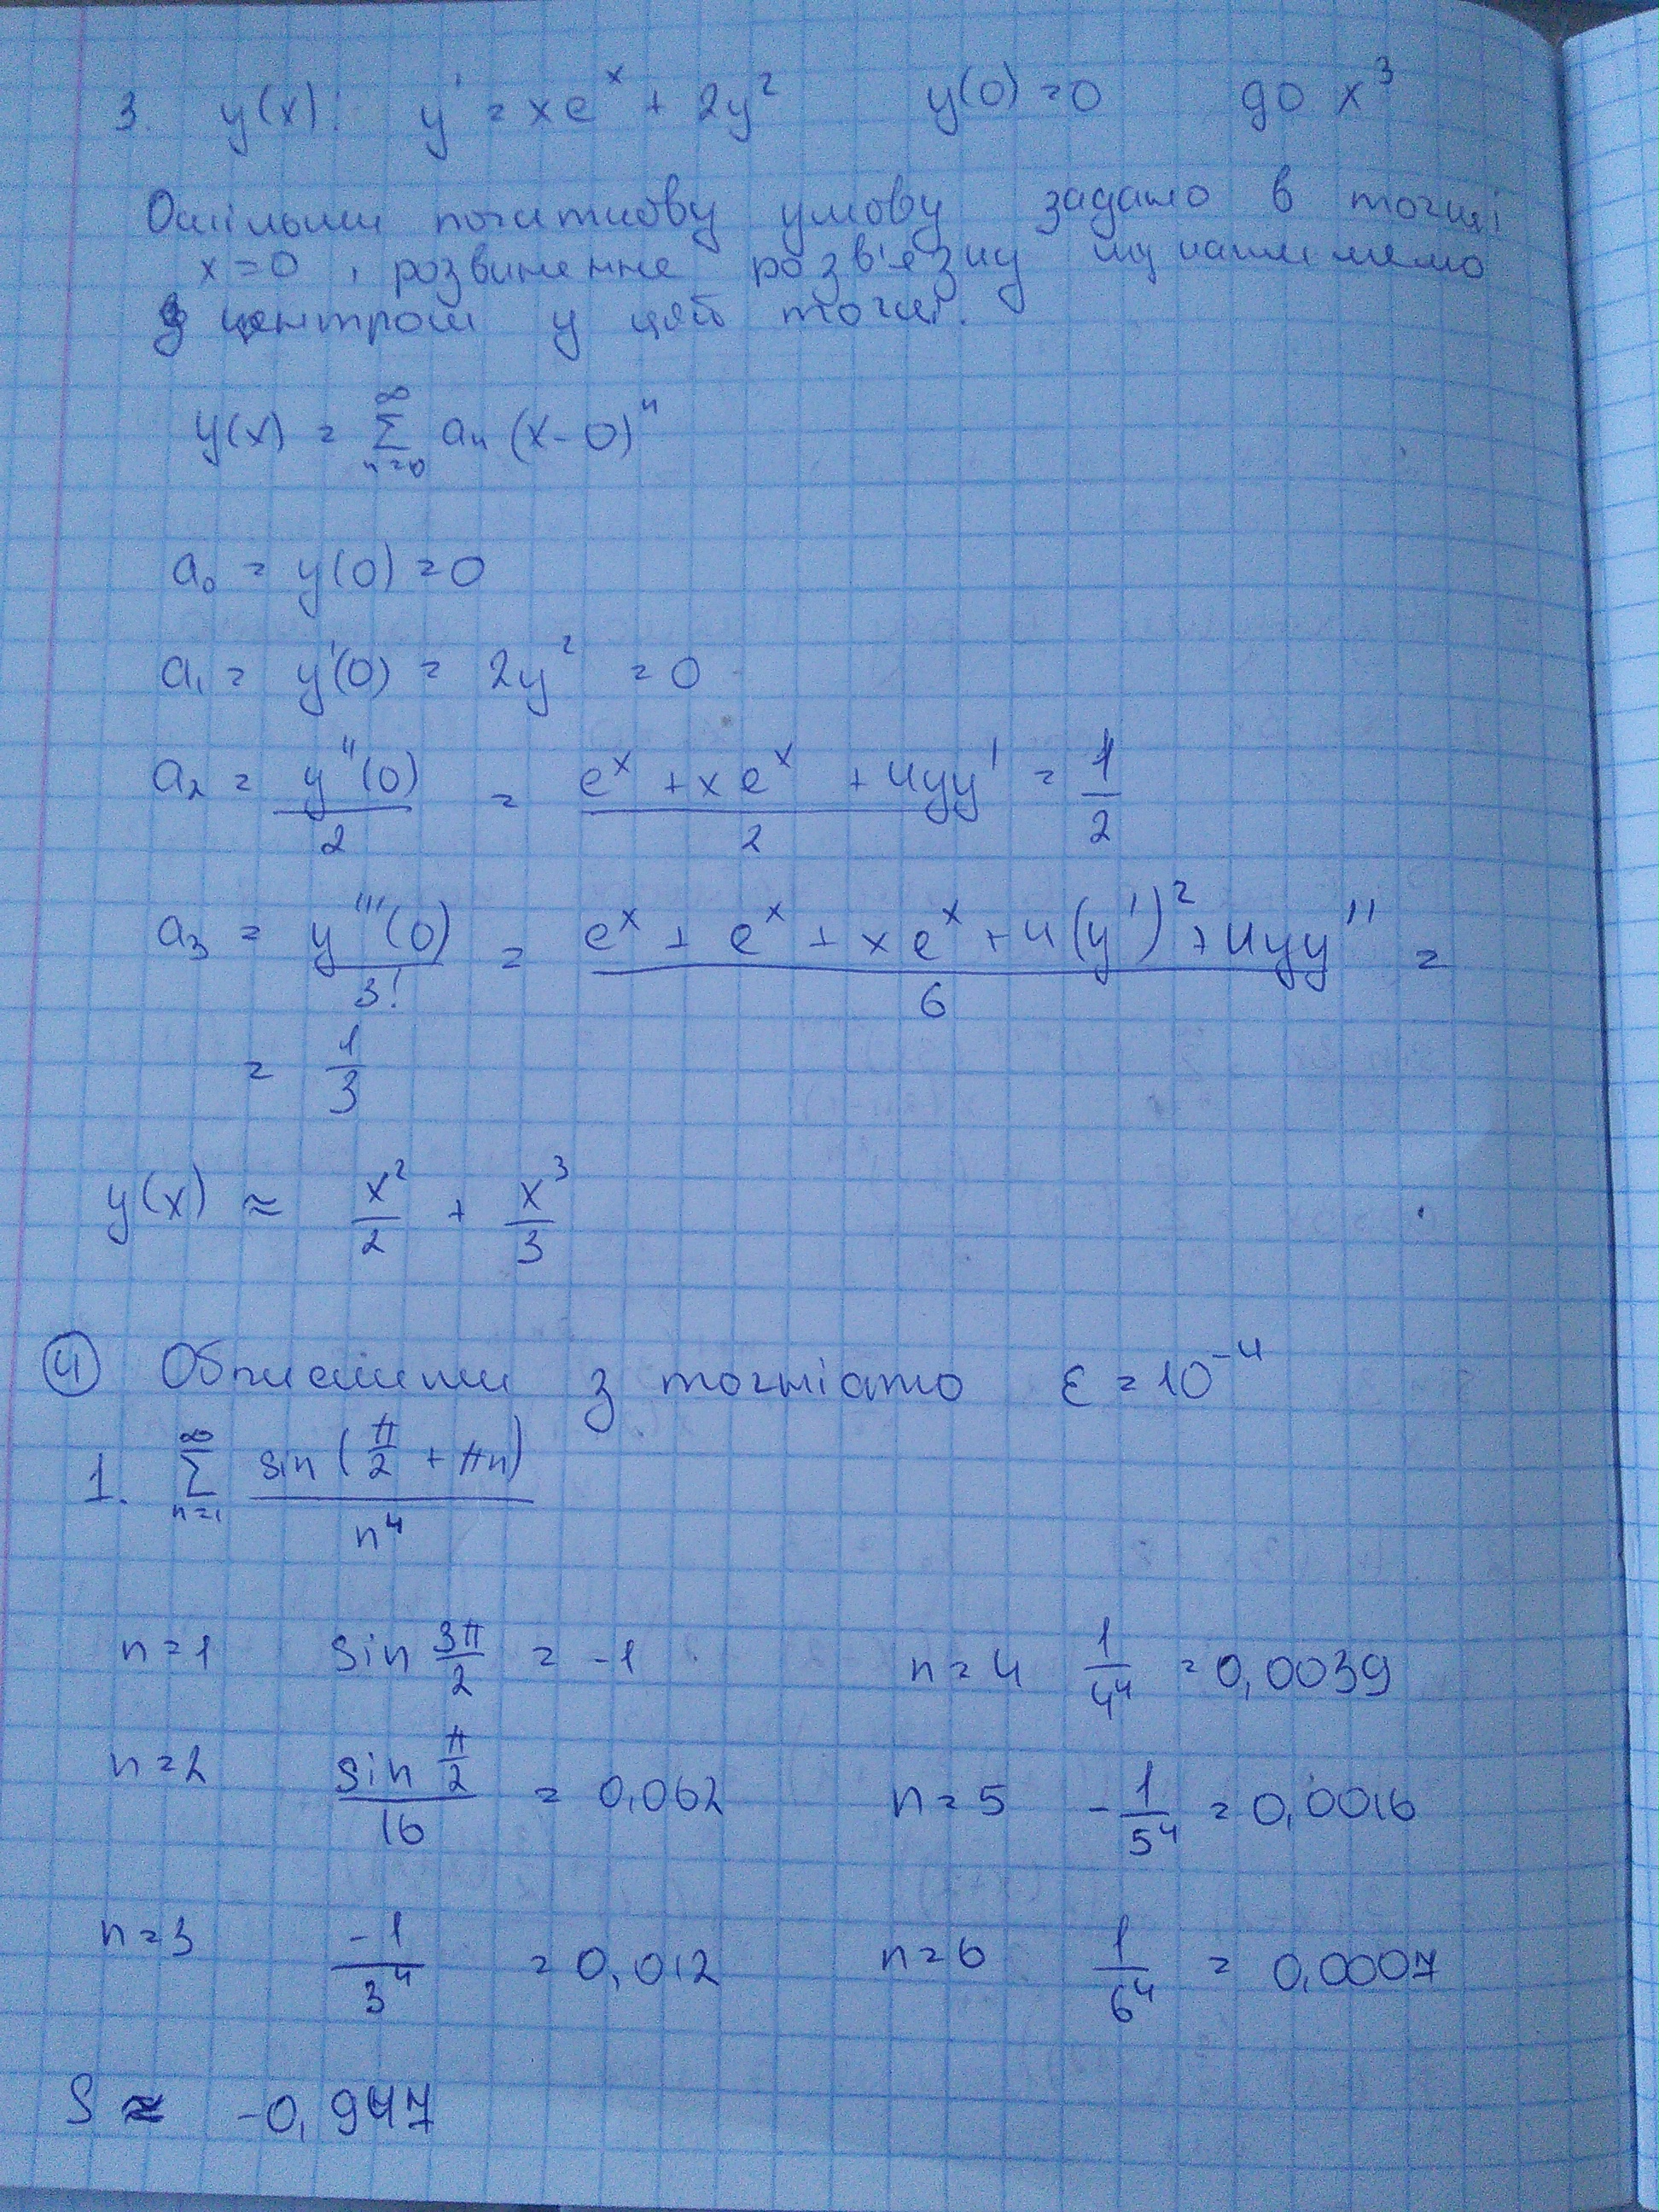 3. y(x): y' = xe^x + 2y^2 y(0)=0 до x^3
Оскільки початкову умову задано в точці
x=0, розвинення розв'язку шукатимемо
з центром у цій точці.
y(x) = ∑_{n=0}^{∞} a_n (x-0)^n
a_0 = y(0) = 0
a_1 = y'(0) = 2y^2 = 0
a_2 = y''(0)/2 = (e^x + xe^x + 4yy')/2 = 1/2
a_3 = y'''(0)/3! = (e^x + e^x + xe^x + 4(y')^2 + 4yy'')/6 =
= 1/3
y(x) ≈ x^2/2 + x^3/3
④ Обчислити з точністю ε = 10^{-4}
1. ∑_{n=1}^{∞} sin(π/2 + πn)/n^4
n=1 sin 3π/2 = -1 n=4 1/4^4 = 0,0039
n=2 sin π/2 /16 = 0,062 n=5 -1/5^4 = 0,0016
n=3 -1/3^4 = 0,012 n=6 1/6^4 = 0,0007
S ≈ -0,947